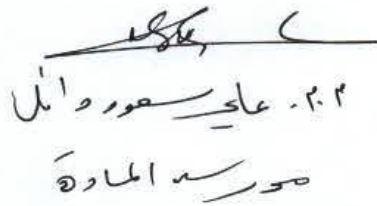 م.م. علي سعود وائل
مدرس المادة